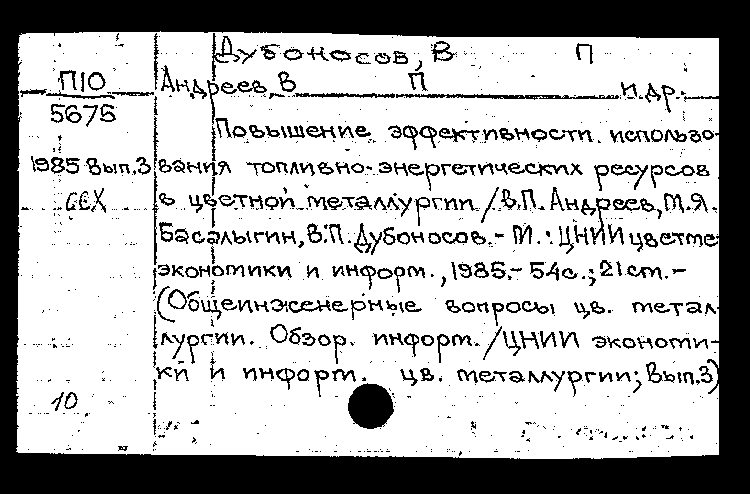 Дубоносов, В П
П10 Андреев, В П и др.
5675
Повышение эффективности использо-
1985 Вып.3 вания топливно-энергетических ресурсов
в цветной металлургии /В.П. Андреев, М.Я.
Басалыгин, В.П. Дубоносов.- М.: ЦНИИцветме
экономики и информ., 1985.- 54с.; 21см.-
(Общеинженерные вопросы цв. метал-
лургии. Обзор. информ. /ЦНИИ экономи-
ки и информ. цв. металлургии; Вып.3)
10